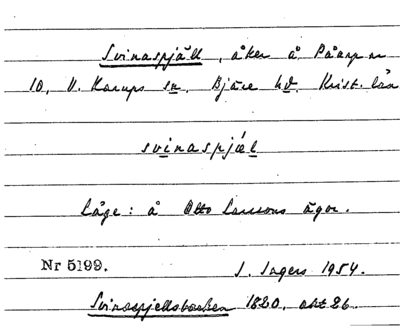 Svinaspjäll, åker å Påarp nr
10, V. Karups sn, Bjäre hd. Krist. län
svinaspjæl
Läge: å Otto Larssons ägor.
Nr 5199.
I. Ingers 1954.
Svinaspjellsbacken 1820, akt 26.